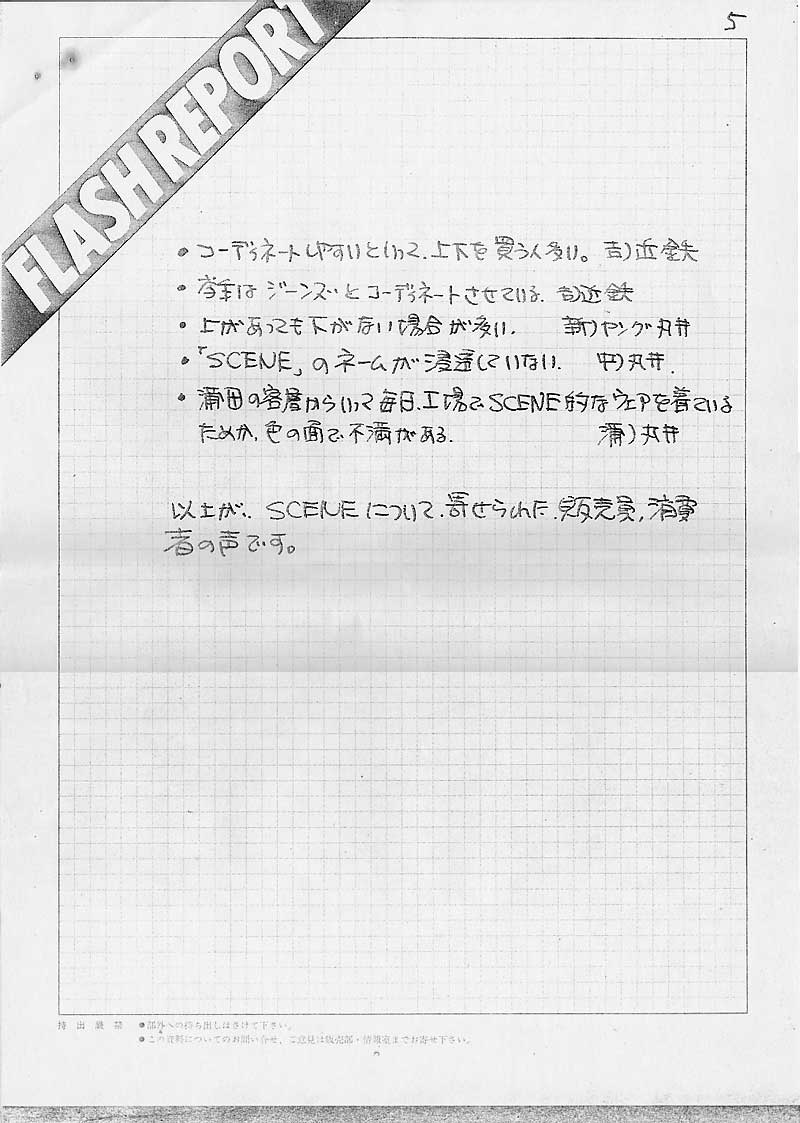 5
FLASH REPORT
• コーディネートしやすいといって、上下を買う人多い。 吉)近鉄
• 若手は ジーンズとコーディネートさせている。 吉)近鉄
• 上があっても下がない場合が多い。 新)ヤング丸井
• 「SCENE」のネームが浸透していない。 中)丸井.
• 蒲田の客層からいって毎日、工場でSCENE的なウェアを着ている
ためか、色の面で不満がある。 蒲)丸井
以上が、SCENEについて、寄せられた、販売員,消費
者の声です。
持出厳禁 ●部外への持ち出しはさけて下さい。
●この資料についてのお問い合せ、ご意見は販売部・情報室までお寄せ下さい。